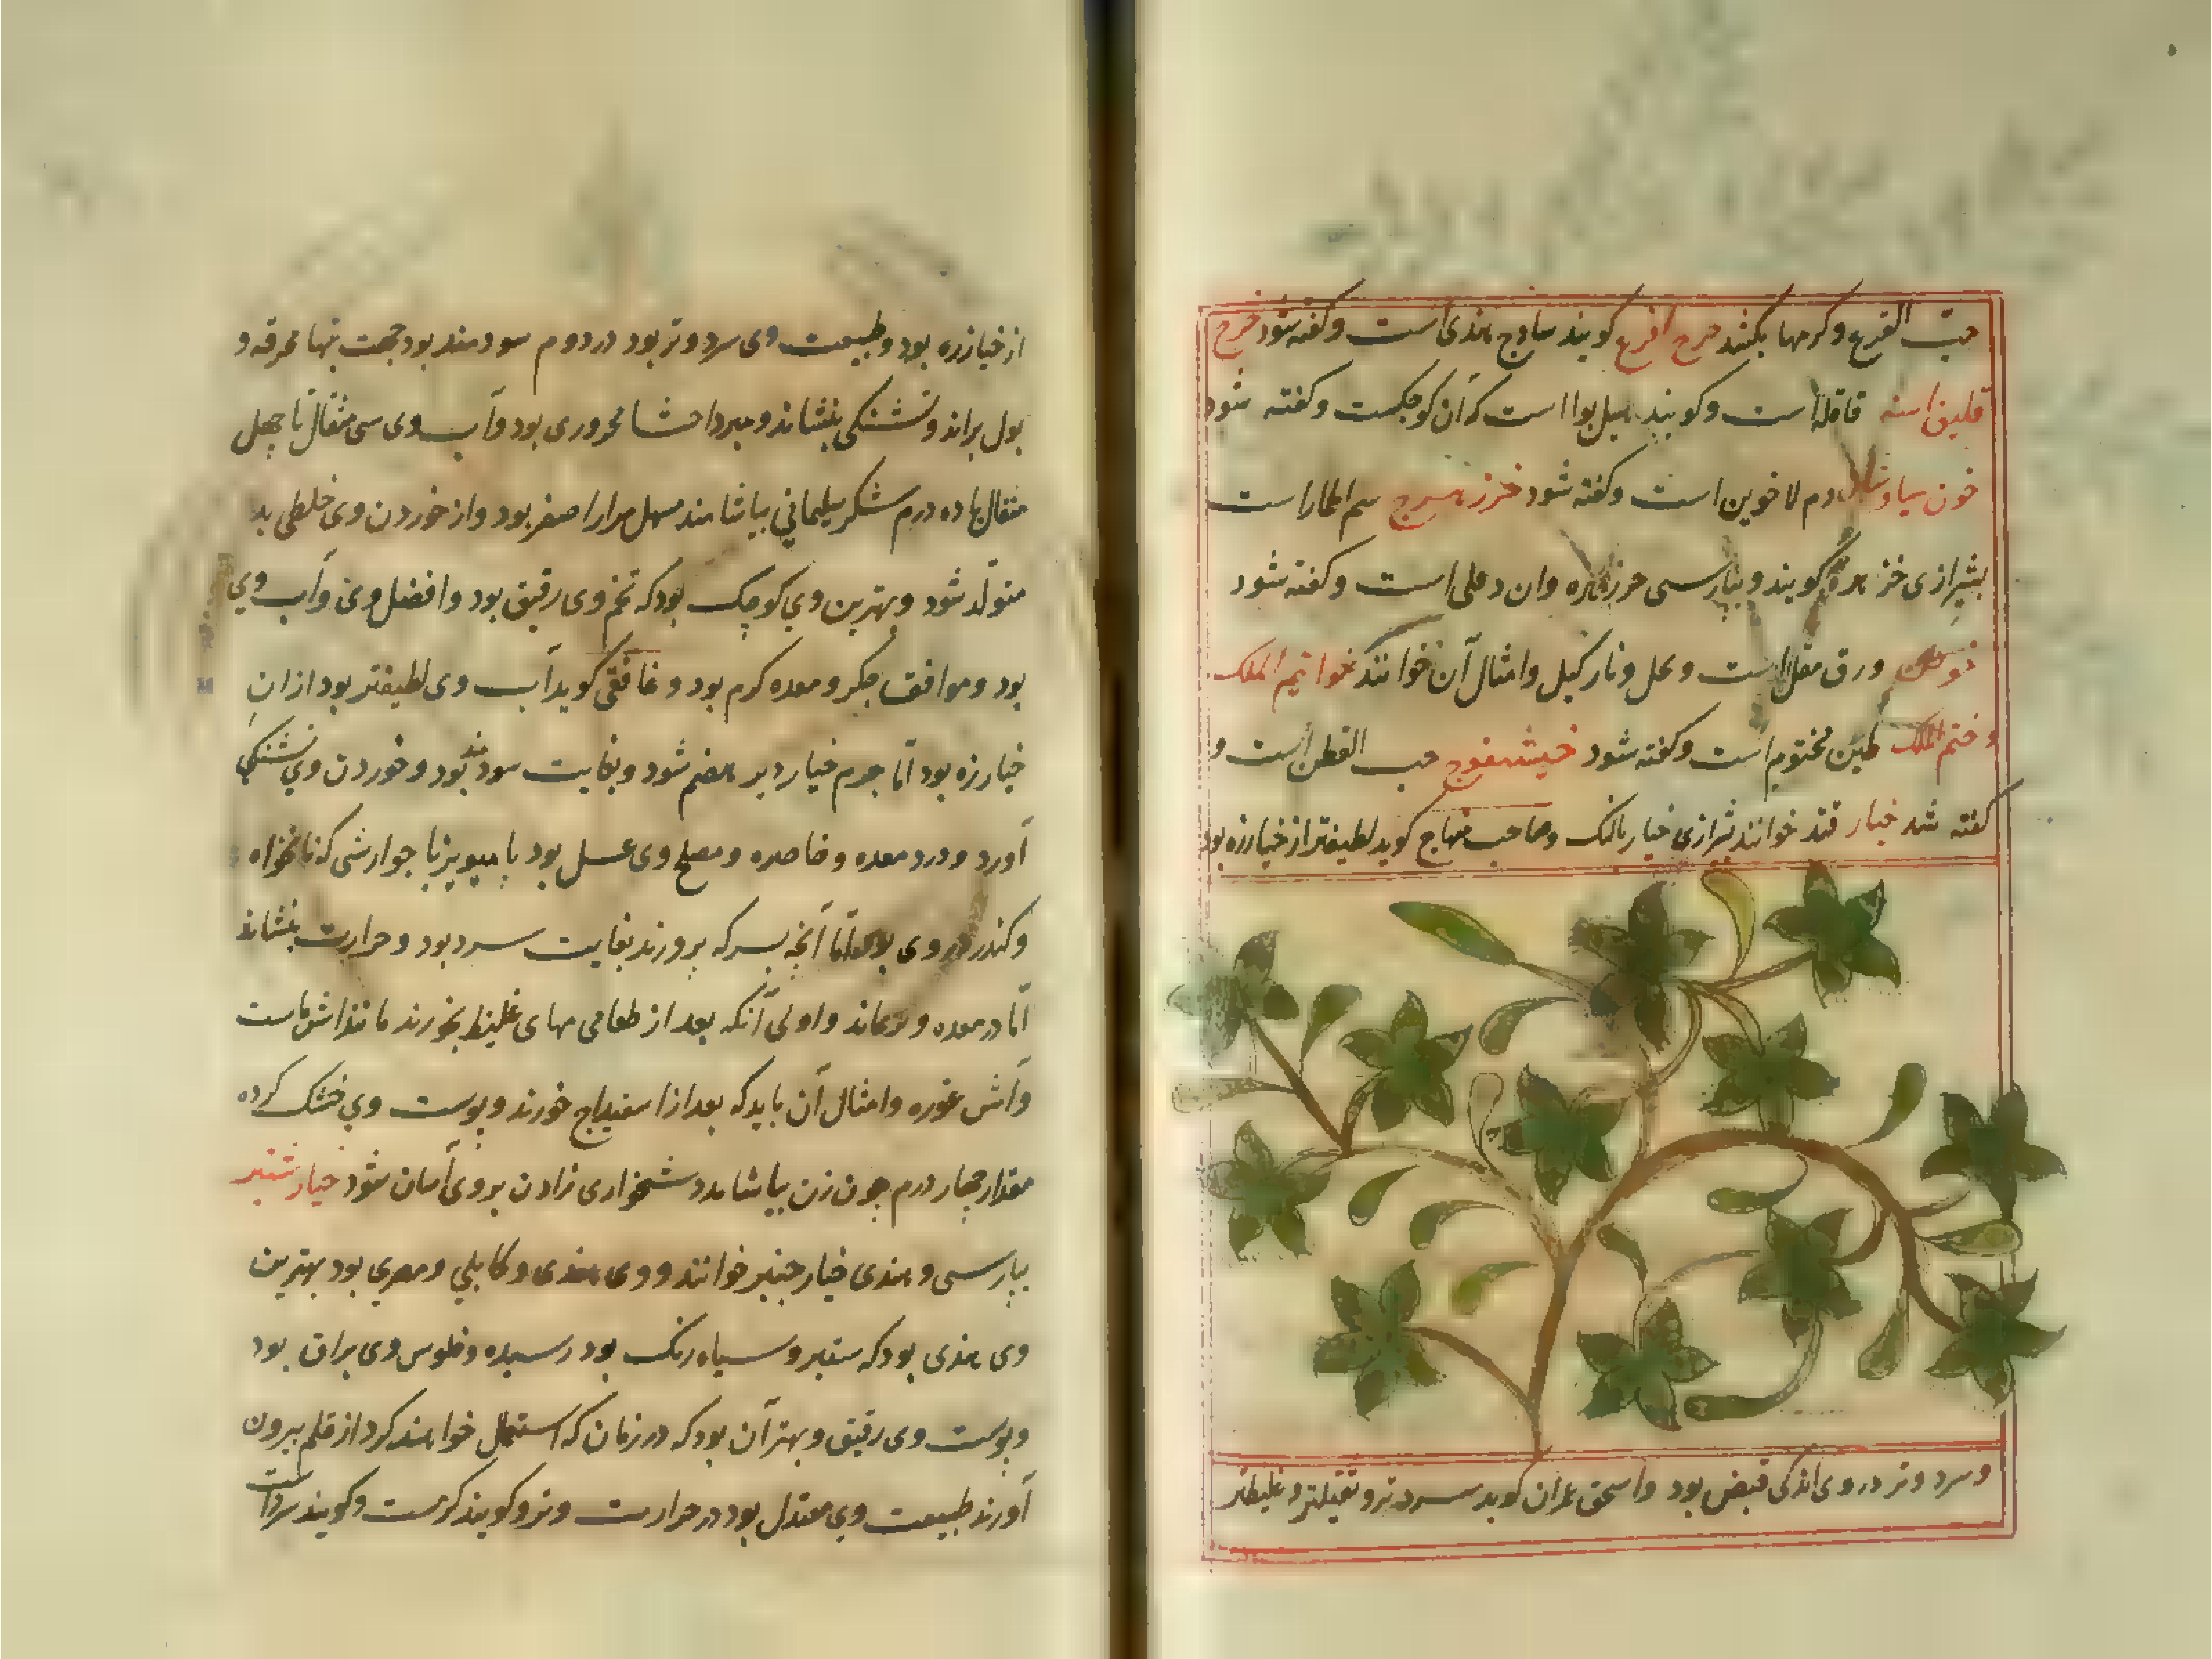 حبّ القرع و کرمها بکشد خرح افرع کویند سادج هندی است و کفته شود خرح
قلیق اسنه قاقله است و کویند هیل بوا است که آن کوچکست و کفته شود
خون سیاوشان دم لاخوین است و کفته شود خرزهرج سم الحمار است
بشیرازی خزهره کویند و بپارسی خرزهره وان دفلی است و کفته شود
ورق مقل است و عل و نارکیل و امثال آن خوانند خواتیم الملک
و ختم الملک طین مختوم است و کفته شود خیشفوج حب القطن است و
کفته شد خیار قثد خوانند شیرازی خیار بالنک و صاحب منهاج کوید لطیفتر از خیارزه بود
و سرد و تر در وی اندکی قبض بود و اسحق عمران کوید سردتر و ثقیلتر و غلیظتر
از خیارزه بود و طبیعت وی سرد و تر بود در دوم سودمند بود جهت تبها محرقه و
بول براند و تشنکی بنشاند و مبرد احشا محروری بود و آب وی سی مثقال تا چهل
مثقال با ده درم شکر سلیمانی بیاشامند مسهل مرار اصفر بود و از خوردن وی خلطی بد
متولّد شود و بهترین وی کوچک بود که تخم وی رقیق بود و افضل وی و آب وی
بود و موافق جکر و معده کرم بود و غافقی کوید آب وی لطیفتر بود از ان
خیارزه بود امّا جرم خیار دیر هضم شود و بغایت سودمند بود و خوردن وی تشنکی
آورد و درد معده و خاصره و مصلح وی عسل بود یا میویز با جوارشی که نانخواه
و کندر در وی بود امّا آنچه بسرکه پرورند بغایت سرد بود و حرارت بنشاند
امّا در معده و بماند و اولی آنکه بعد از طعامی مهای غلیظ بخورند مانند اش ماست
و آش غوره و امثال آن باید که بعد از اسفیداج خورند و پوست وی خشک کرده
مقدار چهار درم چون زن بیاشامد دشخواری زادن بر وی آسان شود خیار شنبر
بپارسی و هندی خیار چنبر خوانند و وی هندی و کابلی و مصری بود بهترین
وی هندی بود که ستبر و سیاه رنک بود رسیده و فلوس وی براق بود
و پوست وی رقیق و بهتر آن بود که در زمان که استعمال خواهند کرد از قلم بیرون
آورند طبیعت وی معتدل بود در حرارت و تر و کویند کرمست و کویند سرد است